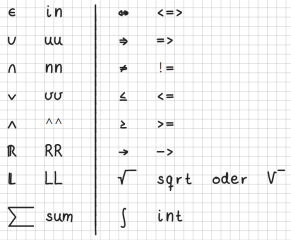 ∈ in ⇔ <=>
∪ uu ⇒ =>
∩ nn ≠ !=
∨ ʊʊ ≤ <=
∧ ^^ ≥ >=
ℝ RR → ->
𝕃 LL √ sqrt oder V‾
∑ sum ∫ int